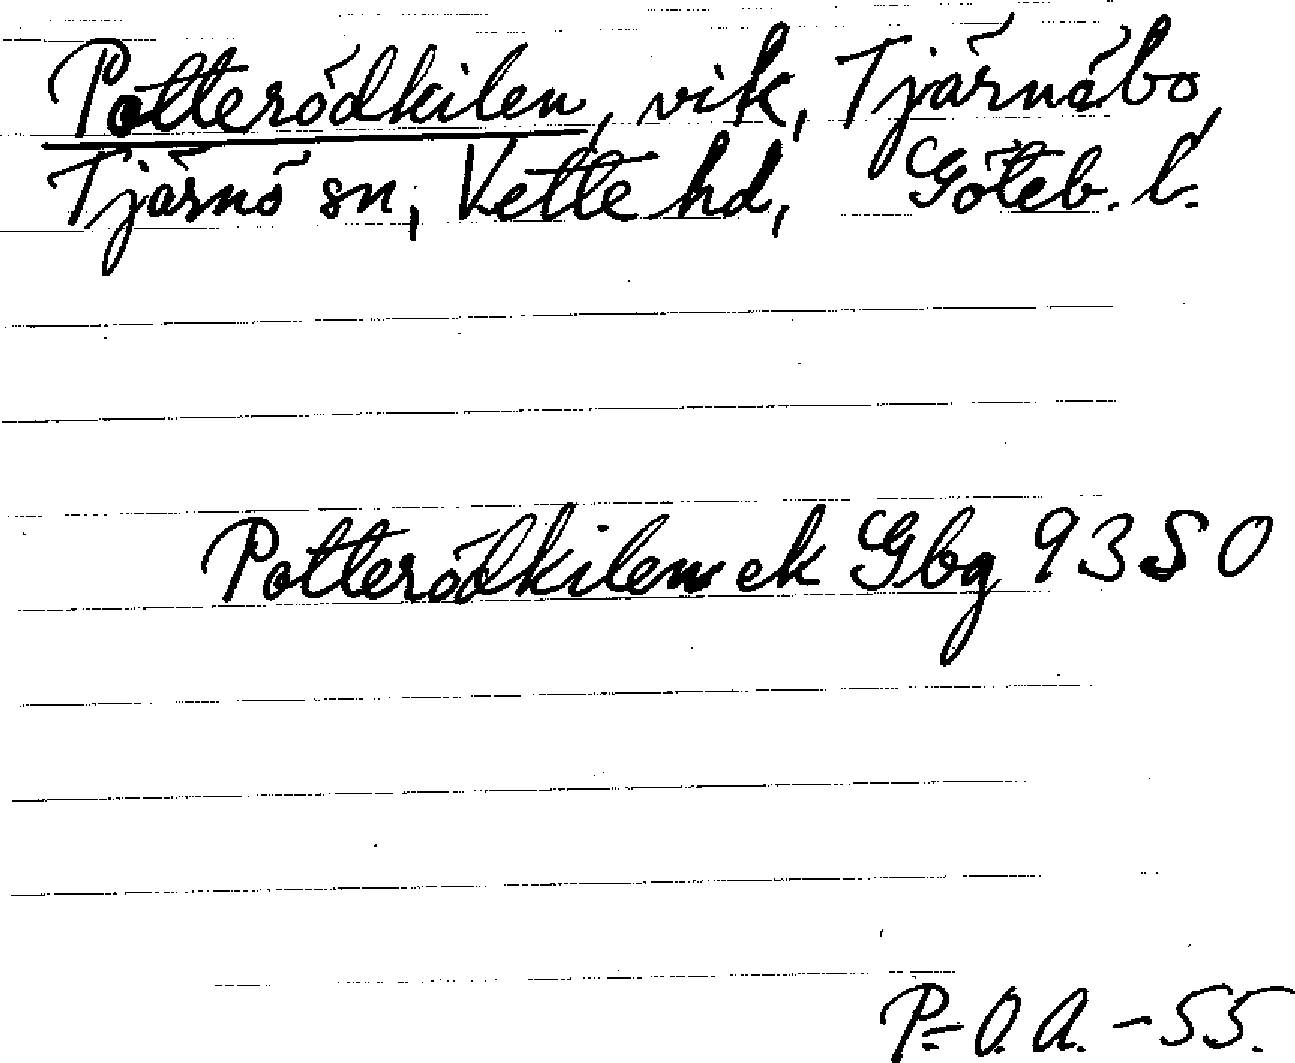 Potterödkilen, vik, Tjärnöbo,
Tjärnö sn, Vette hd, Göteb. l.
Potterödkilen ek Gbg 9350
P-O.A. -55.